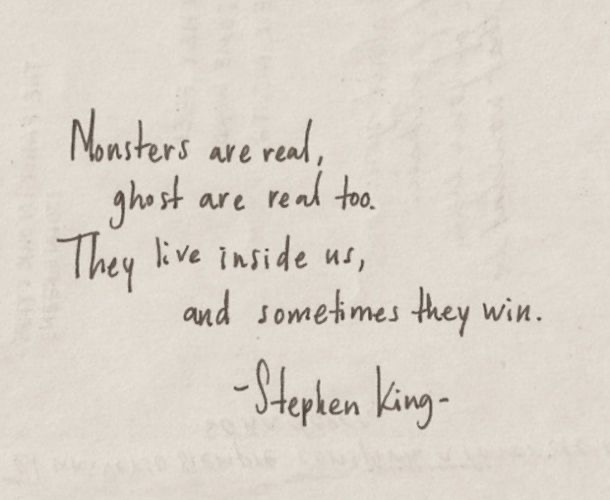 Monsters are real,
ghost are real too.
They live inside us,
and sometimes they win.
-Stephen King-